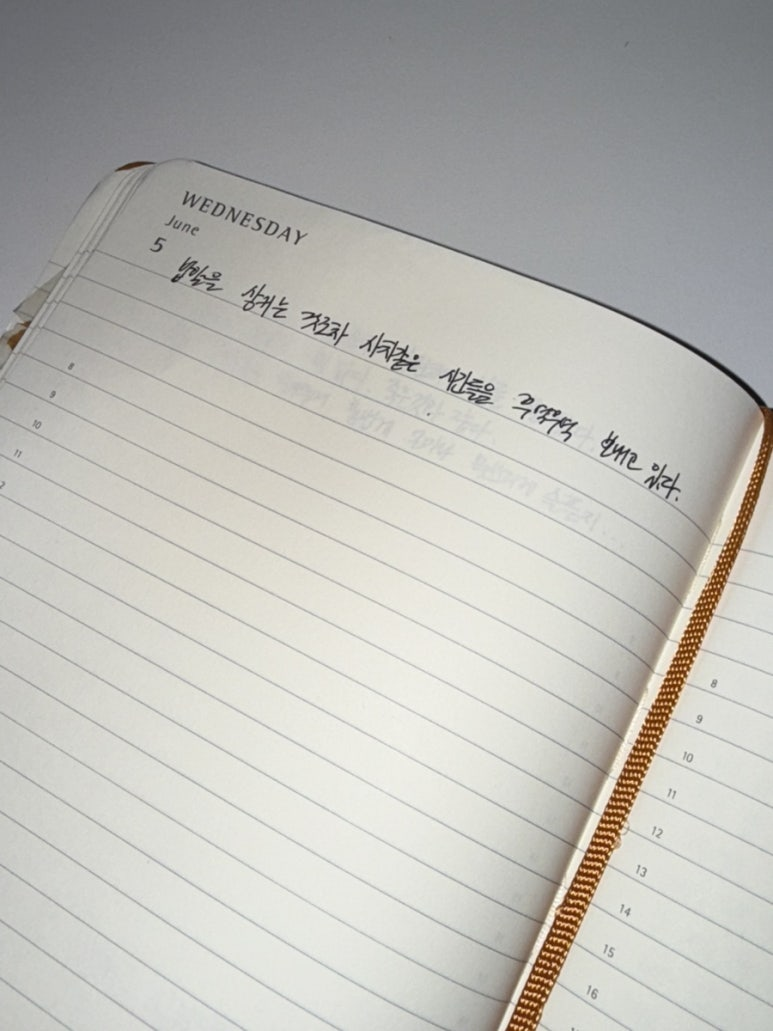 WEDNESDAY
June
5
밥알을 삼키는 것조차 사치같은 시간들을 꾸역꾸역 보내고 있다.
8
9
10
11
2
8
9
10
11
12
13
14
15
16